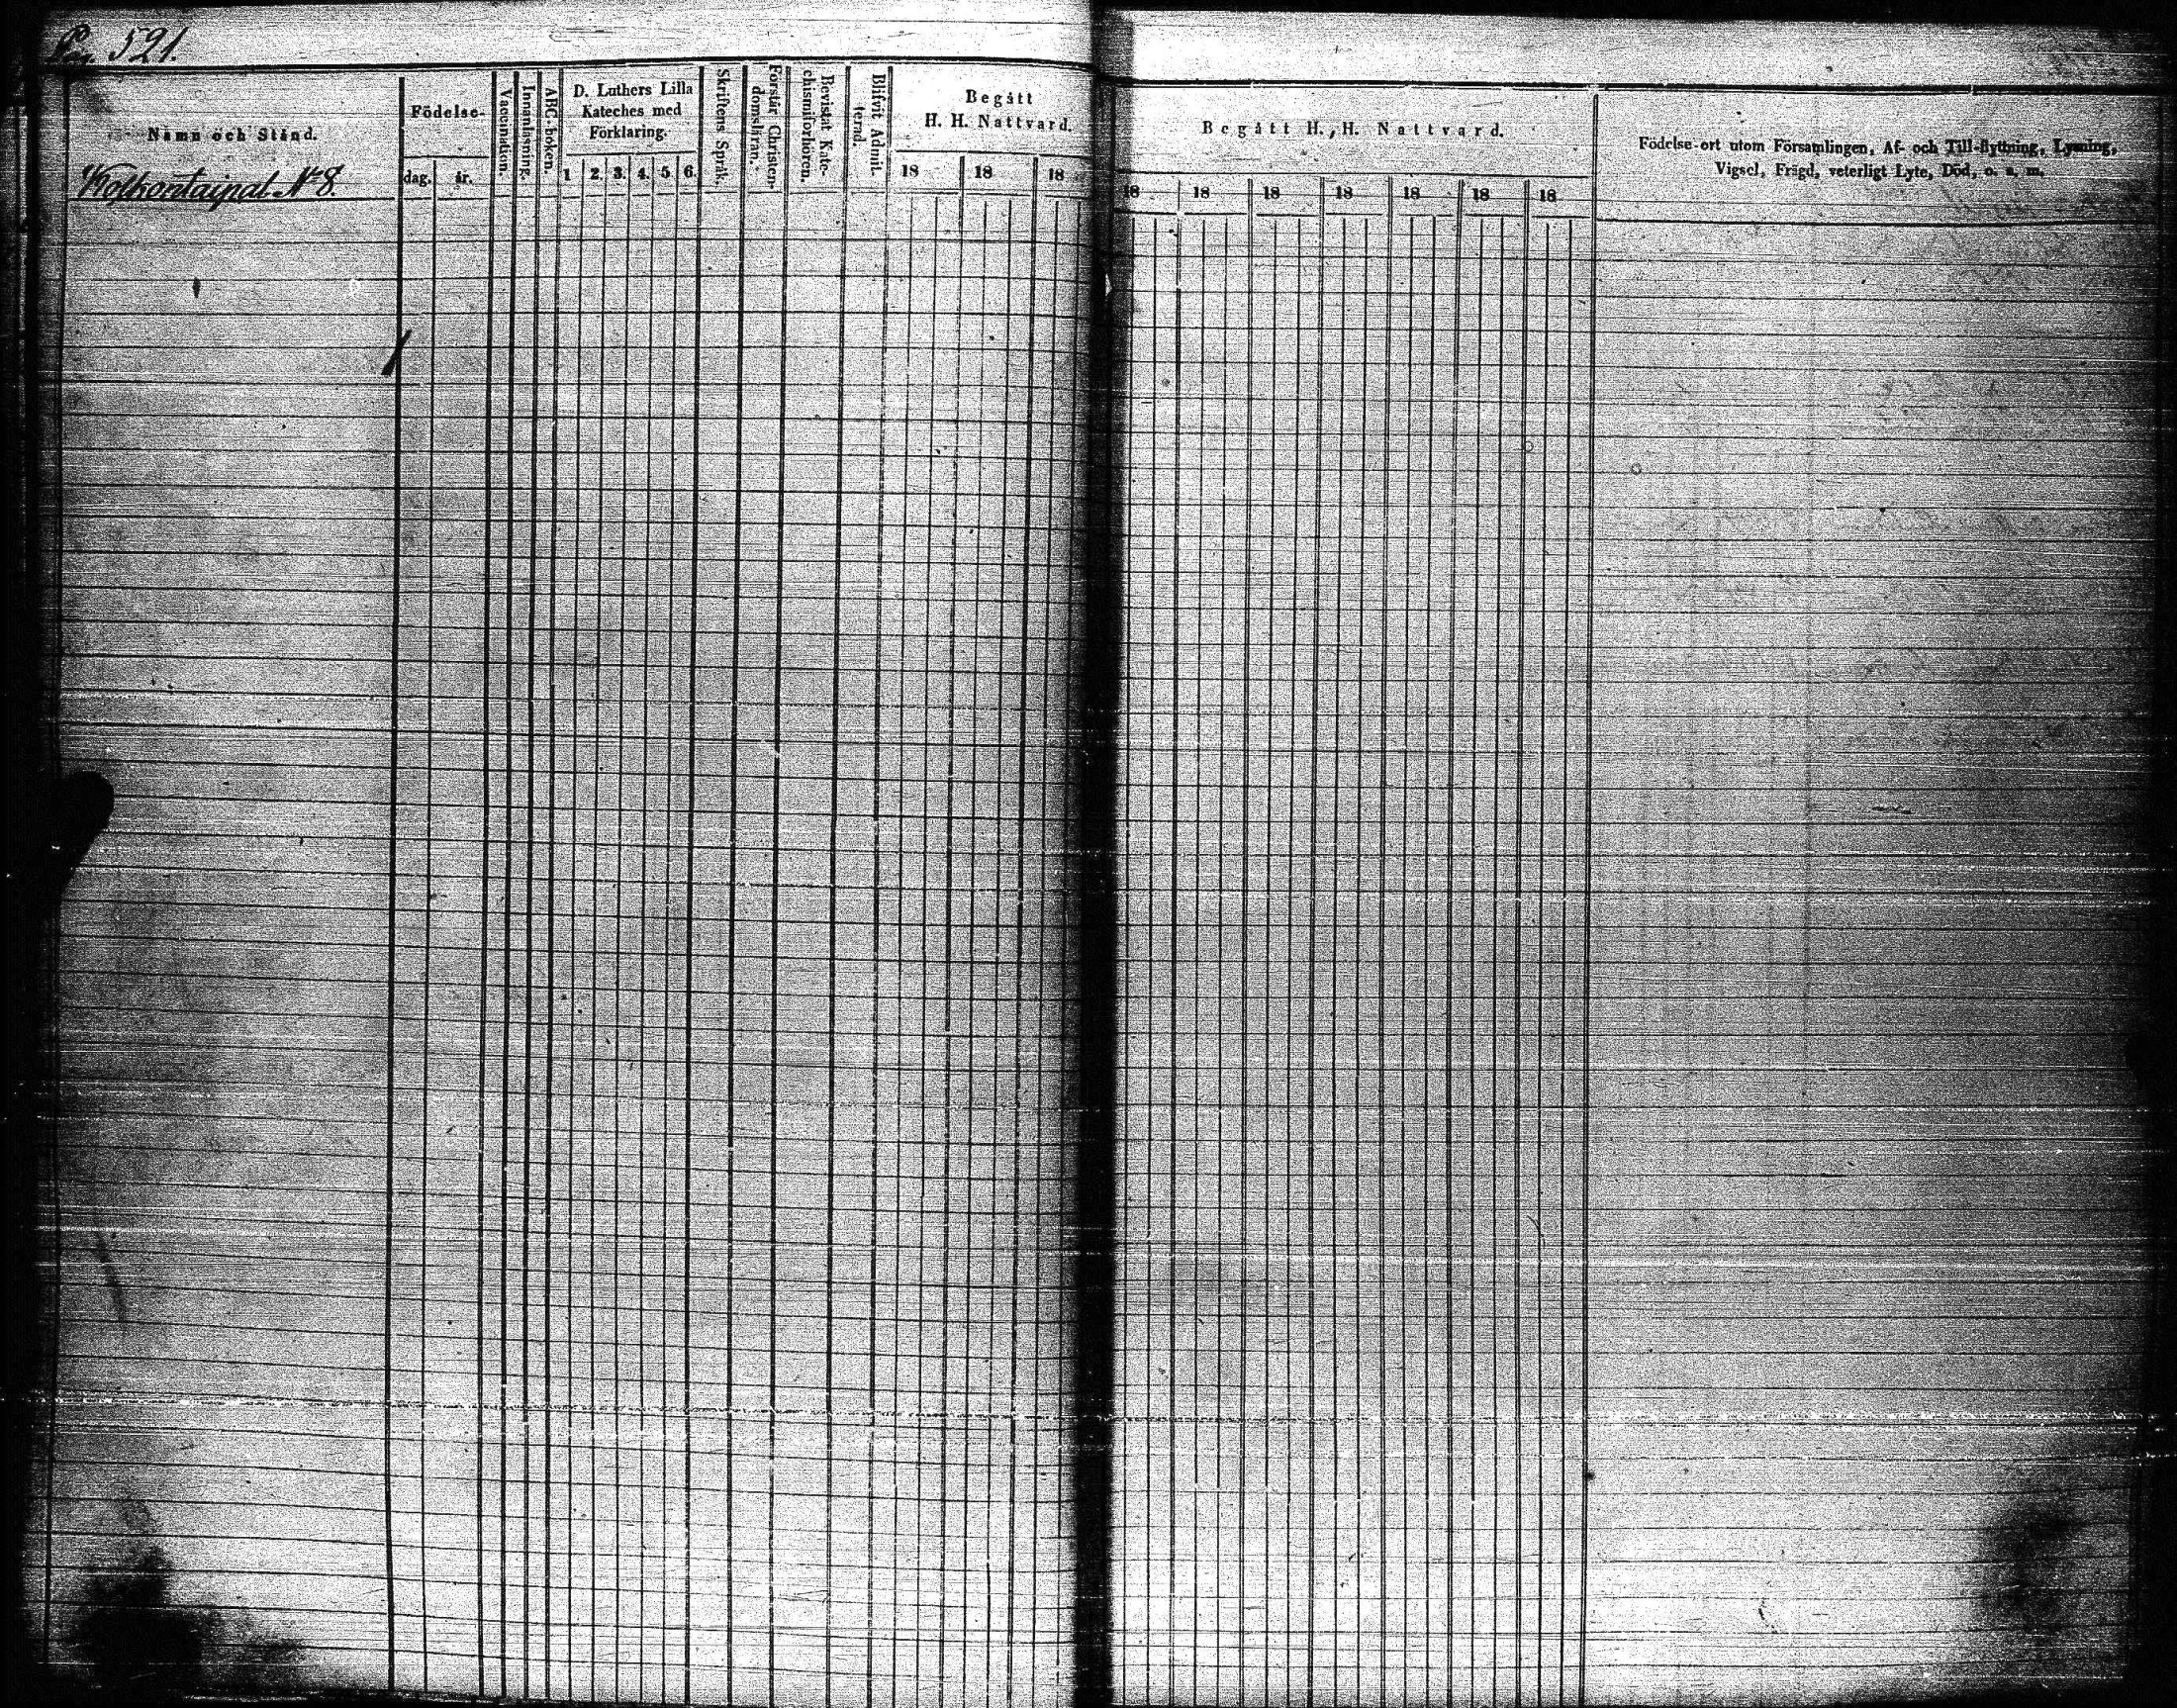 Pag. 521.
Namn och Stånd.
Wolkontaipal № 8.
Födelse-
dag. år.
Vaccination.
Innanläsning.
ABC-boken.
D. Luthers Lilla
Kateches med
Förklaring.
1 2. 3. 4. 5 6.
Skriftens Språk.
Förstår Christen-
domsläran.
Bevistat Kate-
chismiförhören.
Blifvit Admit-
terad.
Begått
H. H. Nattvard.
18 18 18
Begått H. H. Nattvard.
18 18 18 18 18 18 18
Födelse-ort utom Församlingen, Af- och Till-flyttning, Lysning,
Vigsel, Frägd, veterligt Lyte, Död, o. s. m.